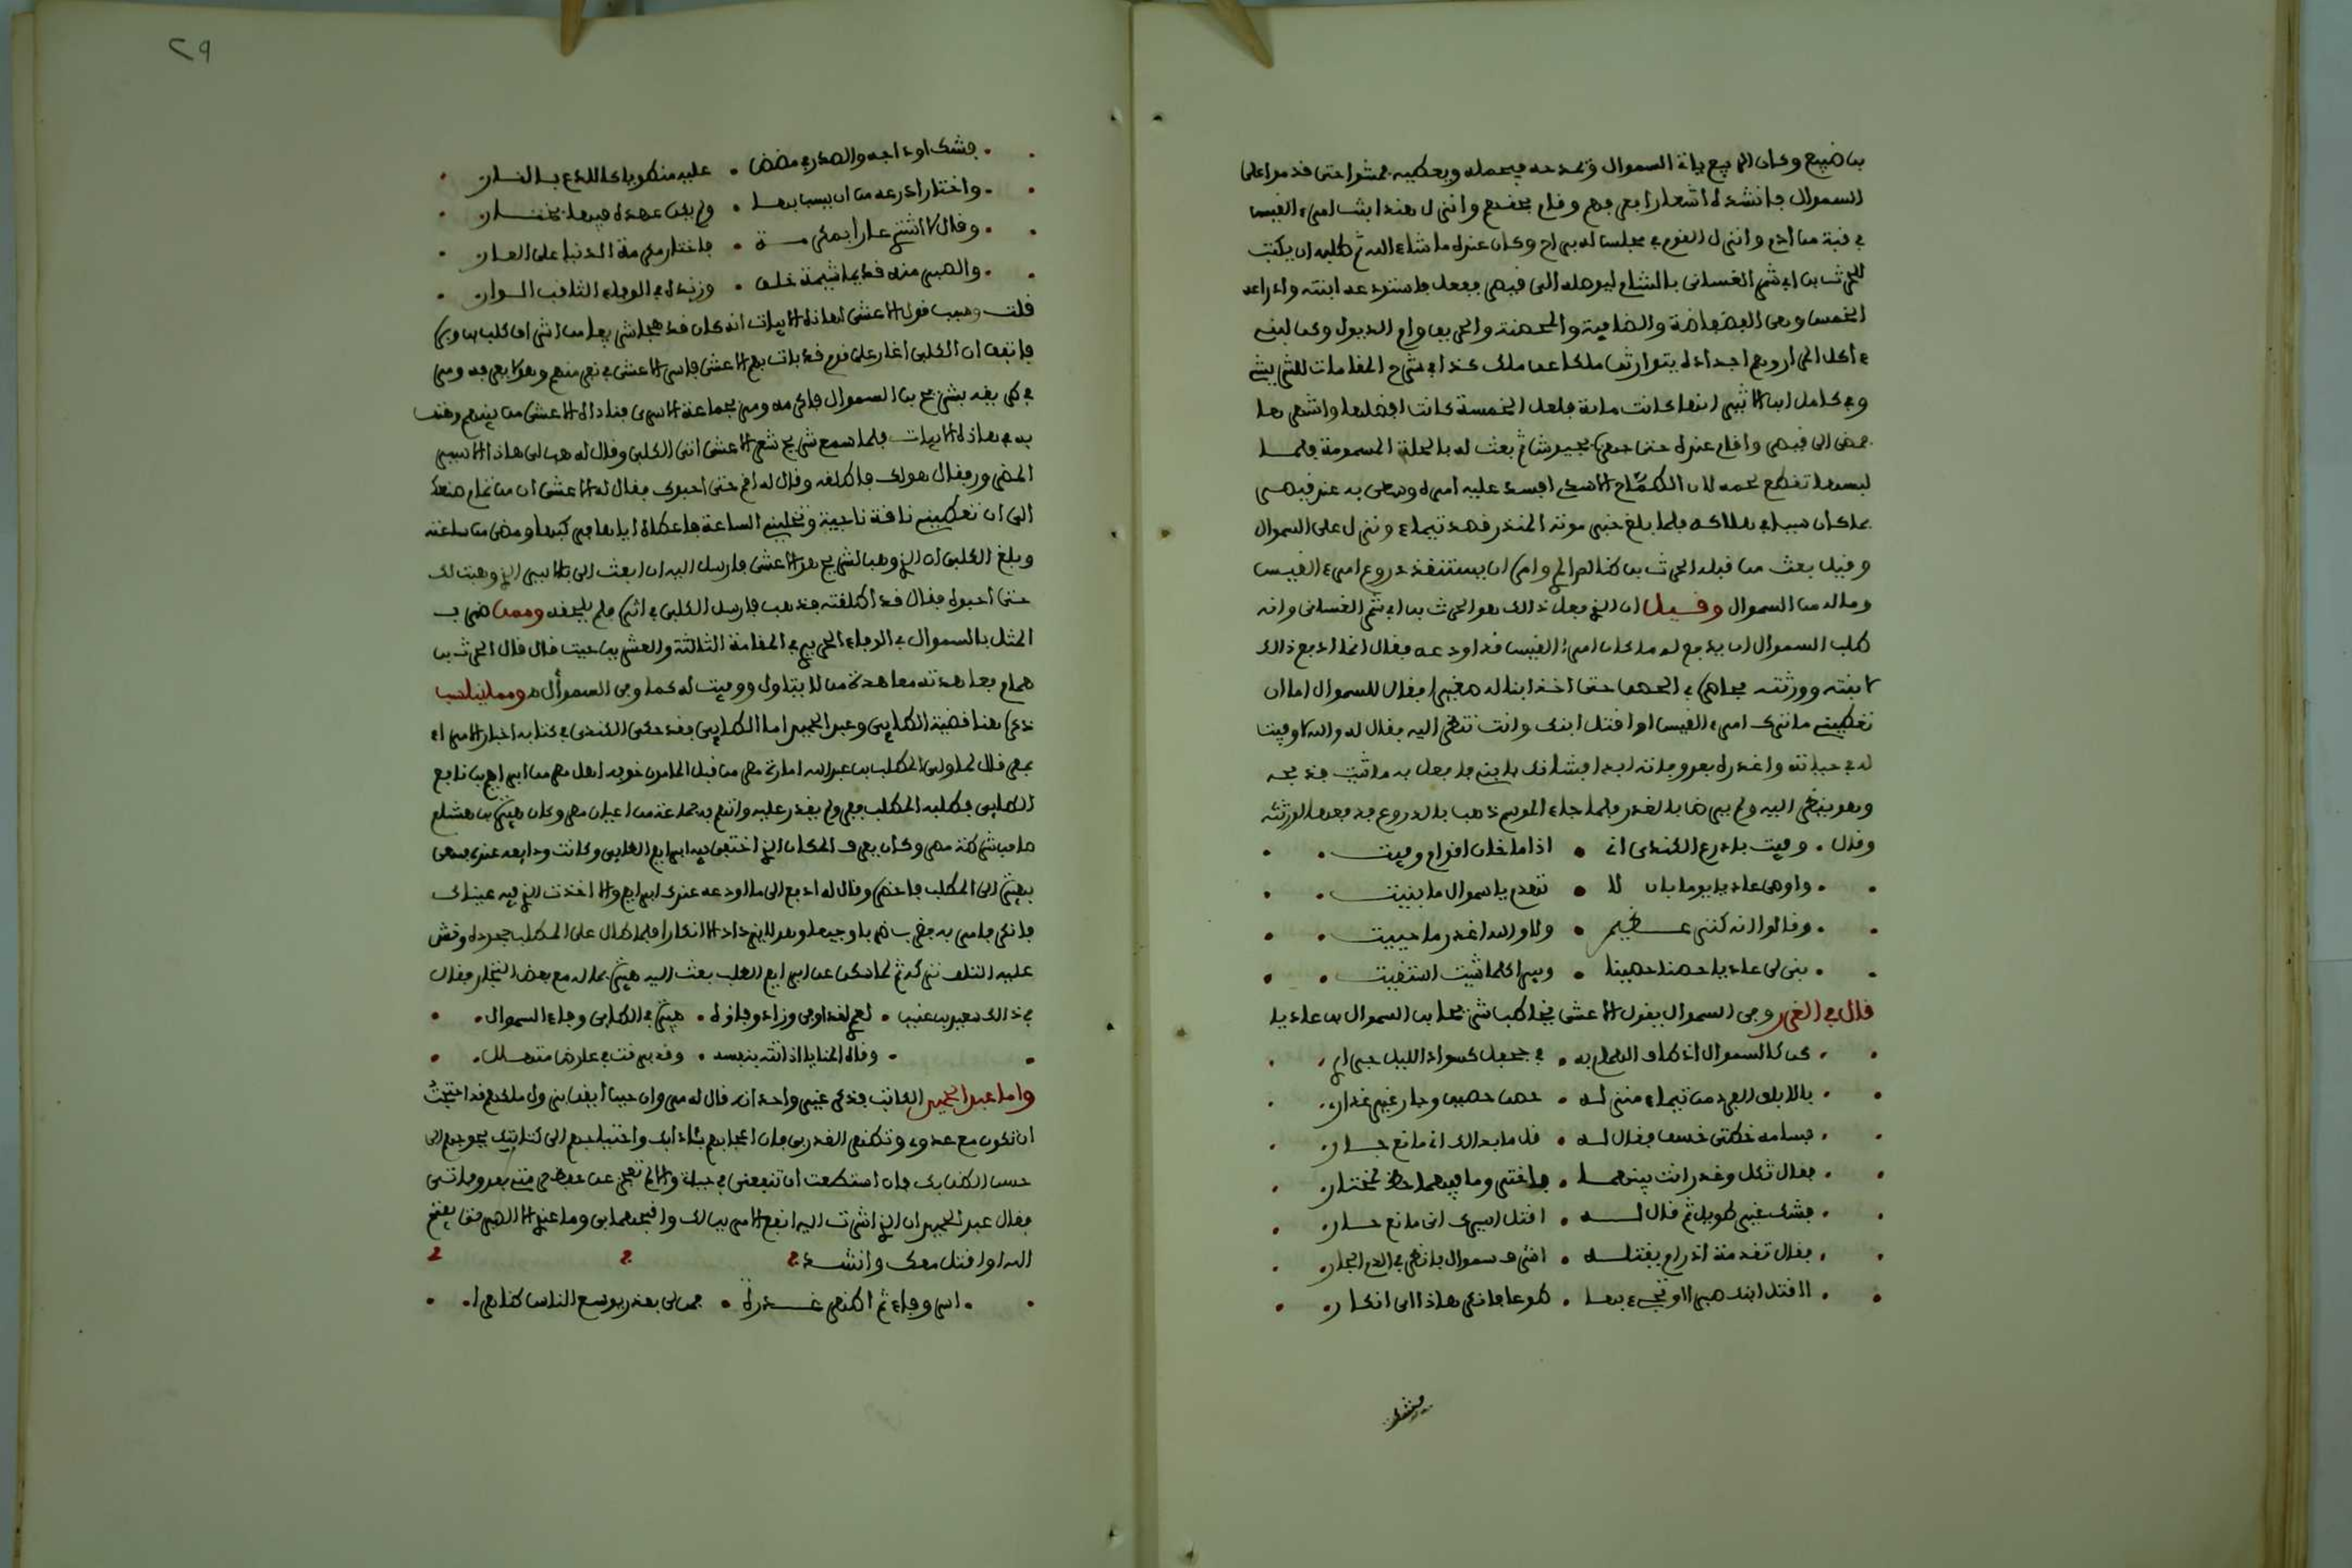 بن ضبيع وكان الربيع ياتى السموال ويمدحه فيحمله ويعطيه فمشوا حتى قدموا على
السموال فانشده اشعارا وعرفهم وقام بحقهم وانزل هندا بنت امرئ القيس
في قبة من ادم وانزل القوم في مجلس له براح وكان عنده ما شاء الله ثم طلب ان يكتب
للحرث بن ابي شمر الغساني بالشام ليوصله الى قيصر ففعل واستودعه ابنته وادراعه
الخمس وهي الفضفاضة والضافية والمحصنة والحريق وام الذيول وكن لبني
اكل المرار وهم اجداده يتوارثها ملكا عن ملك كذا في شرح المقامات للشريشي
وفي كامل ابن الاثير انها كانت مائة ولعل الخمسة كانت افضلها واشهرها
فمضى الى قيصر واقام عنده حتى جهزه بجيوش ثم بعث له بالحلة المسمومة فلما
لبسها تقطع لحمه لان الطماح الاسدي افسد عليه امره وسعى به عند قيصر
فكان سببا في هلاكه فلما بلغ خبر موته المنذر قصد تيماء ونزل على السموال
وقيل بعث من قبله الحرث بن ظالم المري وامره ان يستنقذ دروع امرئ القيس
وماله من السموال وقيل ان الذي فعل ذلك هو الحرث بن ابي شمر الغساني وانه
طلب السموال ان يدفع له ما كان امرؤ القيس قد اودعه فقال انما ادفع ذلك
لابنته وورثته فحاصره في الحصن حتى اخذ ابنا له صغيرا فقال للسموال اما ان
تعطيني ما ترك امرئ القيس او اقتل ابنك وانت تنظر اليه فقال له والله لا وفيت
له في حياته واغدره بعد وفاته ابدا فشانك بابني فافعل به ما شئت فذبحه
وهو ينظر اليه ولم يرض بالغدر فلما جاء الموسم ذهب بالدروع فدفعها لورثته
وقال • وفيت بادرع الكندي اني • اذا ما خان اقوام وفيت •
• واوصى عاديا يوما بان لا • تهدم يا سموال ما بنيت •
• وقالوا انه كنز عظيم • ولا والله اغدر ما حييت •
• بنى لي عاديا حصنا حصينا • وبيرا كلما شئت استقيت •
قال في الغرر وفي السموال يقول الاعشى يخاطب شريحا بن السموال بن عاديا
• كن كالسموال اذ طاف الهمام به • في جحفل كسواد الليل جرار •
• بالابلق الفرد من تيماء منزله • حصن حصين وجار غير غدار •
• قسامه خطتي خسف فقال له • قل ما بدا لك اني مانع جار •
• فقال ثكل وغدر انت بينهما • فاختر وما فيهما حظ لمختار •
• فشك غير طويل ثم قال له • اقتل اسيرك اني مانع جار •
• فقال تقدمة اذ رام يقتله • اشرف سموال فانظر في الدم الجار •
• ااقتل ابنك صبرا او تجيء بها • طوعا فانكر هذا اي انكار •
فشك
٢٩
• فشك اوداجه والصدر في مضض • عليه منطويا كاللذع بالنار •
• واختار ادرعه من ان يسب بها • ولم يكن عهده فيها بختار •
• وقال لا اشتري عارا بمكرمة • فاختار مكرمة الدنيا على العار •
• والصبر منه قديما شيمة خلق • وزنده في الوفاء الثاقب الوار •
قلت وسبب قول الاعشى هذه الابيات انه كان قد هجا شريفا من اشراف كلب بن وبرة
فاتفق ان الكلبي اغار على قوم قد بات بهم الاعشى فاسر الاعشى في نفر منهم وهو لا يعرفه ومر
في طريقه بشريح بن السموال فاكرمه ومر بجماعة الاسرى فناداه الاعشى من بينهم وهتف
به في هذه الابيات فلما سمع شريح شعر الاعشى اتى الكلبي وقال له هب لي هذا الاسير
المضرور فقال هو لك فاطلقه وقال له اقم حتى احبوك فقال له الاعشى ان من تمام صنعك
الي ان تعطيني ناقة ناجية وتخليني الساعة فاعطاه اياها فركبها ومضى من ساعته
وبلغ الكلبي ان الذي وهب لشريح هو الاعشى فارسل اليه ان ابعث الي بالاسير الذي وهبت لك
حتى احبوه فقال قد اطلقته فذهب فارسل الكلبي في اثره فلم يلحقه وممن ضرب
المثل بالسموال في الوفاء الحريري في المقامة الثالثة والعشرين حيث قال قال الحرث بن
همام فعاهدته معاهدة من لا يتاول ووفيت له كما وفى السموأل • ومما يناسب
ذكره هنا قضية الطاهري وعبد الحميد اما الطاهري فقد حكى الكندي في كتابه اخبار الامراء
بمصر قال لما ولي المطلب بن عبد الله امارة مصر من قبل المامون خوفه اهل مصر من ابراهيم بن نافع
الطاهري فطلبه المطلب ففر ولم يقدر عليه واتهم به جماعة من اعيان مصر وكان هبيرة بن هشام
صاحب شرطة مصر وكان يعرف المكان الذي اختفى فيه ابراهيم الطاهري وكانت ودايعه عنده فسعى
بهبيرة الى المطلب فاحضره وقال له ادفع الي ما اودعه عندك ابراهيم والا اخذت الذي فيه عيناك
فانكر فامر به فضرب ضربا وجيعا وهو لا يزداد الا انكارا فلما طال على المطلب جحوده وخشي
عليه التلف تركه ثم لما سكن عن ابراهيم الطلب بعث اليه هبيرة بماله مع بعض التجار فقال
في ذلك سعيد بن عفير • لعمري لقد اوفى وزاد وفاؤه • هبيرة في الطاهري وفاء السموال •
• وقاه المنايا اذ اتته بنفسه • وقد برقت في عارض متهلل •
واما عبد الحميد الكاتب فذكر غير واحد انه قال له مروان حين ايقن بزوال ملكه قد احتجت
ان تكون مع عدوي وتظهر الغدر بي فان اعجابهم بادابك واحتياجهم الى كتابتك يحوجهم الى
حسن الظن بك فان استطعت ان تنفعني في حياتي والا لم تعجز عن حفظ حرمتي بعد وفاتي
فقال عبد الحميد ان الذي اشرت اليه انفع الامرين لك واقبحهما بي وما عندي الا الصبر حتى يفتح
الله او اقتل معك وانشد
• اسر وفاء ثم اظهر غدرة • فمن لي بعذر يوسع الناس ظاهرا •